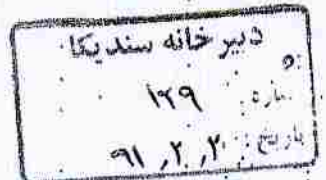 دبیر خانه سندیکا
شماره : ۱۲۹
تاریخ : ۹۱,۲,۲۰